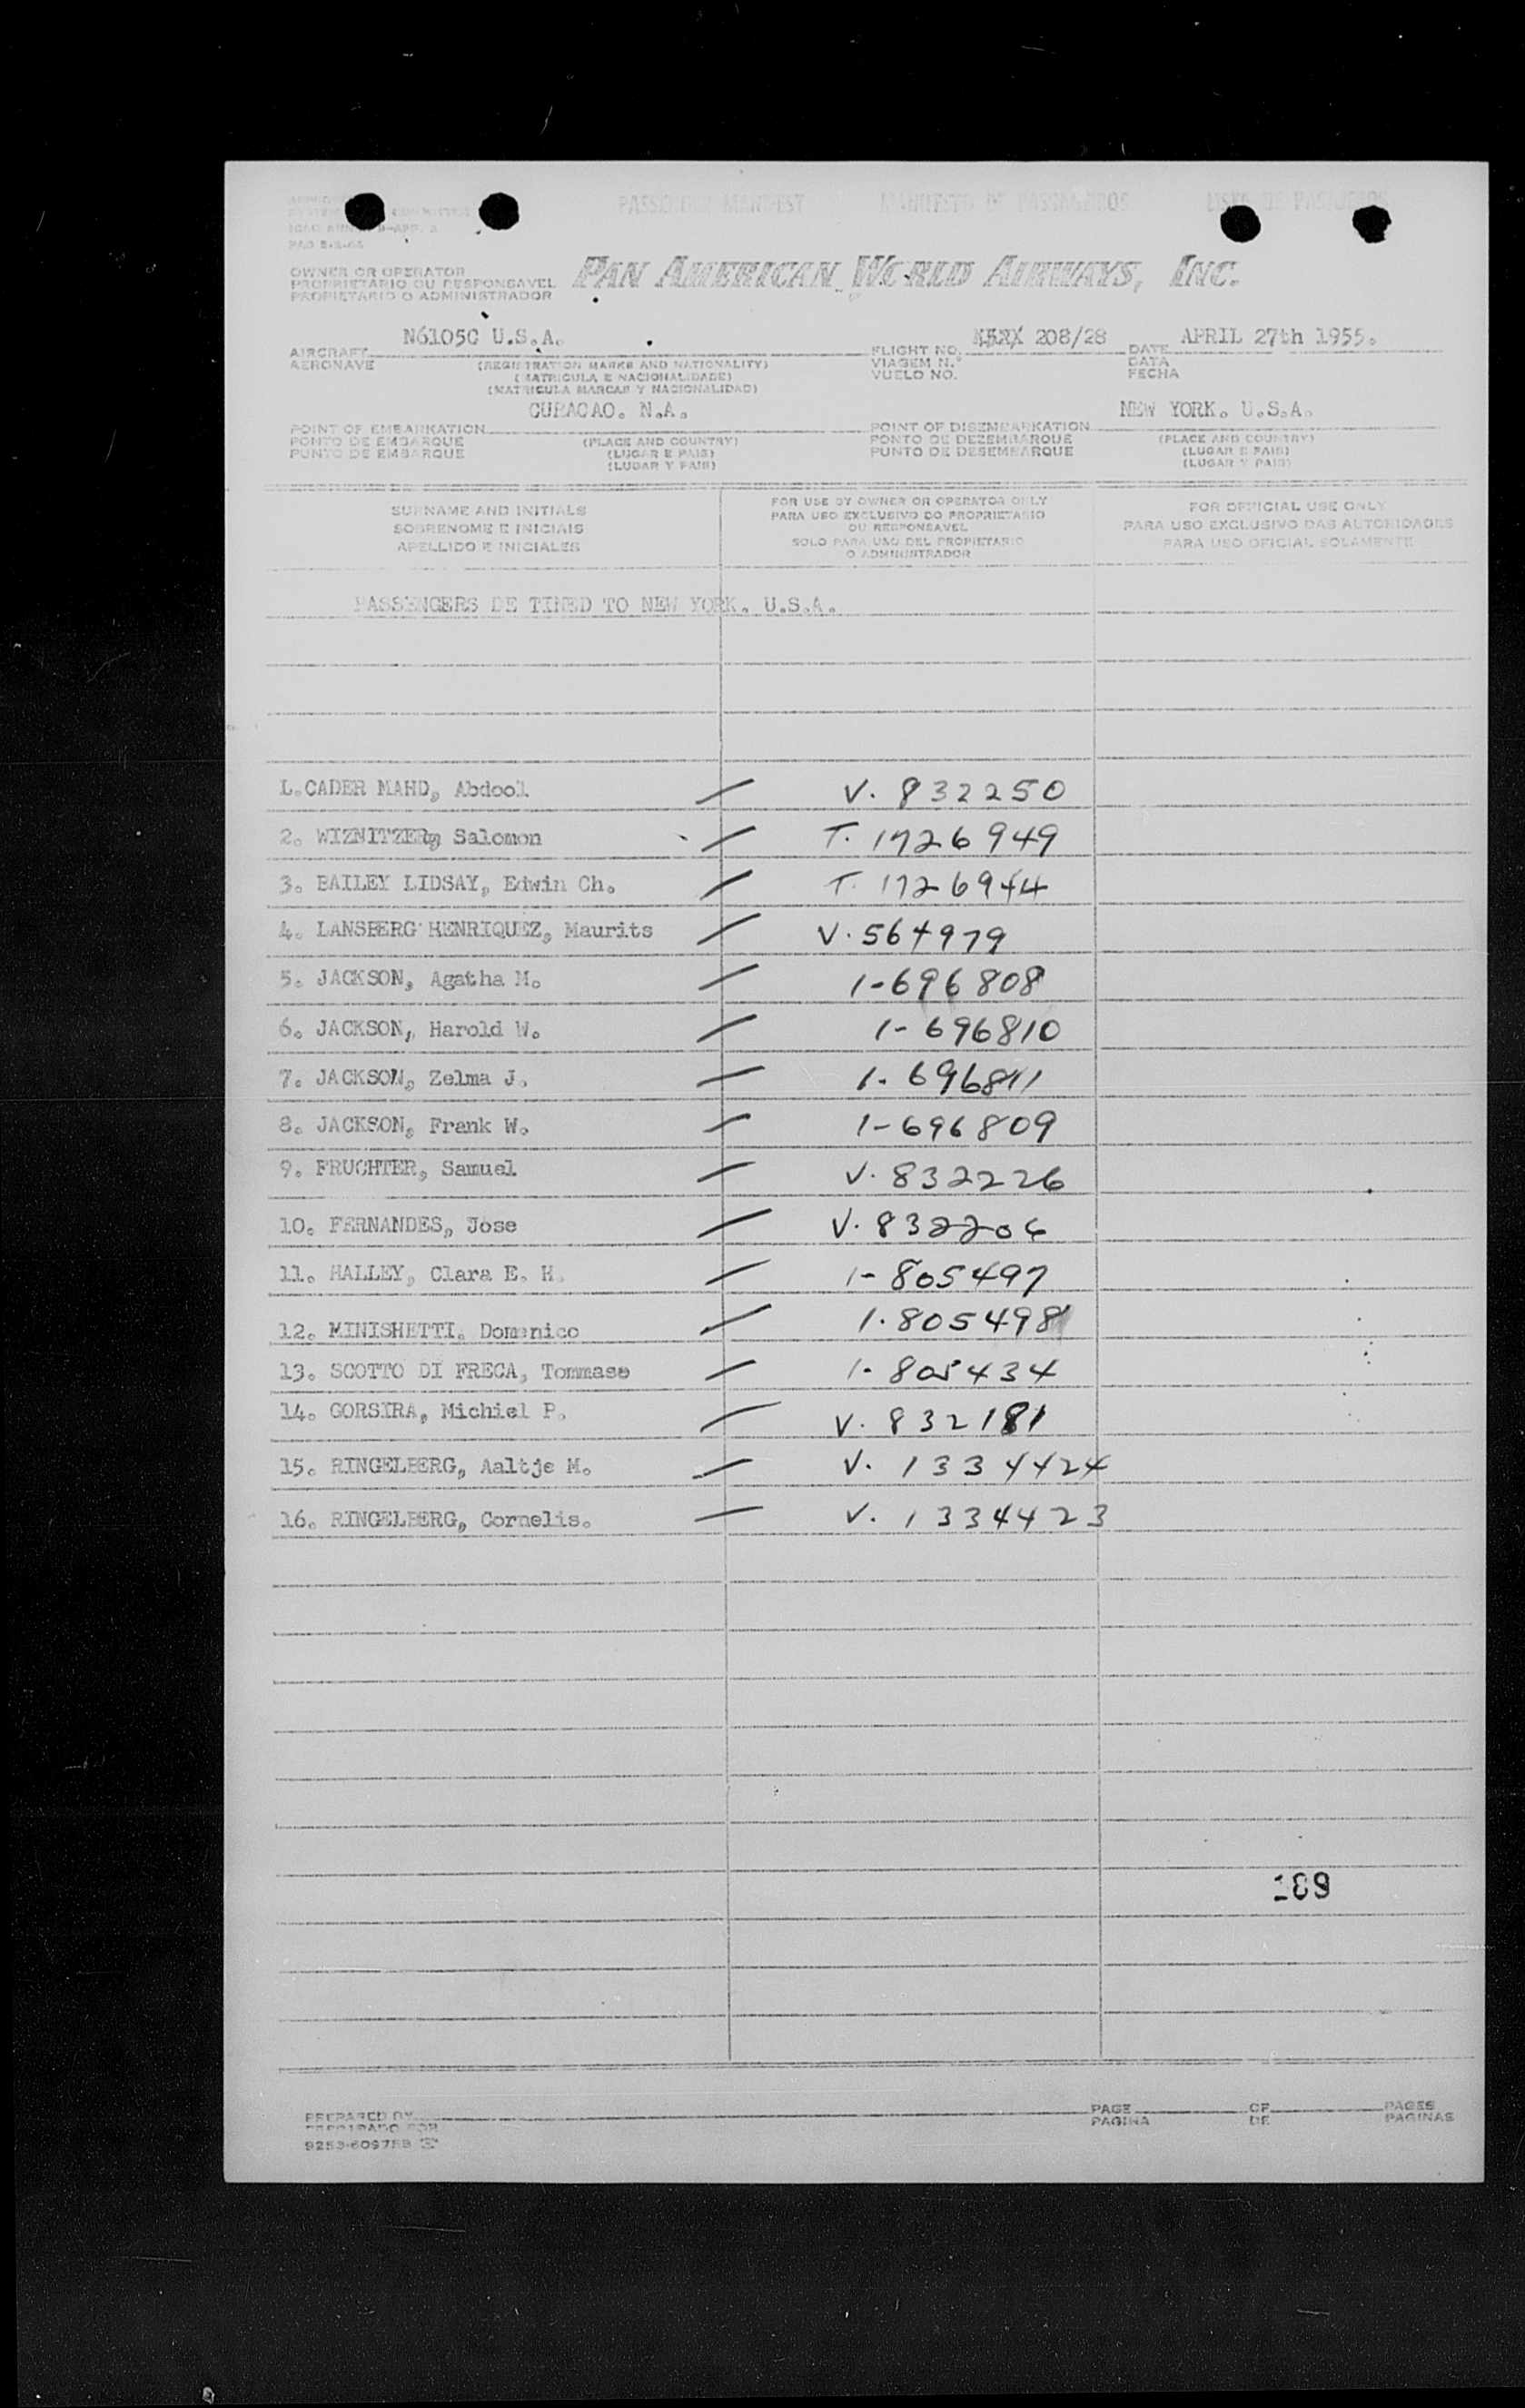 PASSENGER MANIFEST MANIFESTO DE PASSAGEIROS LISTA DE PASAJEROS
OWNER OR OPERATOR
PROPRIETARIO OU RESPONSAVEL
PROPIETARIO O ADMINISTRADOR
PAN AMERICAN WORLD AIRWAYS, INC.
AIRCRAFT N6105C U.S.A. FLIGHT NO. 208/28 DATE APRIL 27th 1955.
AERONAVE (REGISTRATION MARKS AND NATIONALITY) VIAGEM N.º DATA
(MATRICULA E NACIONALIDADE) VUELO NO. FECHA
(MATRICULA MARCAS Y NACIONALIDAD)
POINT OF EMBARKATION CURACAO. N.A. POINT OF DISEMBARKATION NEW YORK. U.S.A.
PONTO DE EMBARQUE (PLACE AND COUNTRY) PONTO DE DEZEMBARQUE (PLACE AND COUNTRY)
PUNTO DE EMBARQUE (LUGAR E PAIS) PUNTO DE DESEMBARQUE (LUGAR E PAIS)
(LUGAR Y PAIS) (LUGAR Y PAIS)
SURNAME AND INITIALS
SOBRENOME E INICIAIS
APELLIDO E INICIALES
FOR USE BY OWNER OR OPERATOR ONLY
PARA USO EXCLUSIVO DO PROPRIETARIO
OU RESPONSAVEL
SOLO PARA USO DEL PROPIETARIO
O ADMINISTRADOR
FOR OFFICIAL USE ONLY
PARA USO EXCLUSIVO DAS AUTORIDADES
PARA USO OFICIAL SOLAMENTE
PASSENGERS DE TINED TO NEW YORK. U.S.A.
1.CADER MAHD, Abdool V. 832250
2. WIZNITZER, Salomon T. 1726949
3. BAILEY LIDSAY, Edwin Ch. T. 1726944
4. LANSBERG HENRIQUEZ, Maurits V. 564979
5. JACKSON, Agatha M. 1-696808
6. JACKSON, Harold W. 1-696810
7. JACKSON, Zelma J. 1. 696811
8. JACKSON, Frank W. 1-696809
9. FRUCHTER, Samuel V. 832226
10. FERNANDES, Jose V. 832206
11. HALLEY, Clara E. H. 1-805497
12. MINISHETTI. Domenico 1.805498
13. SCOTTO DI FRECA, Tommaso 1-805434
14. GORSIRA, Michiel P. V. 832181
15. RINGELBERG, Aaltje M. V. 1334424
16. RINGELBERG, Cornelis. V. 1334423
189
PREPARED BY PAGE OF PAGES
PREPARADO POR PAGINA DE PAGINAS